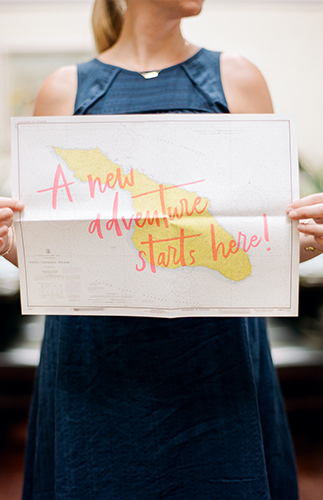 A new
adventure
starts here!